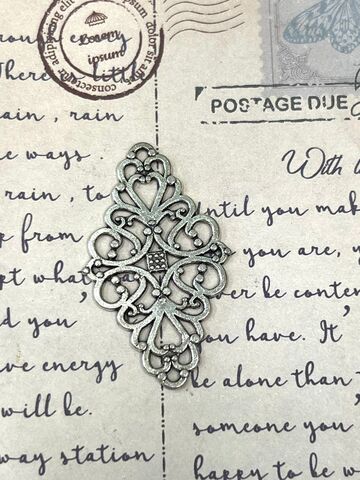 consectetur adipiscing elit
ipsum dolor sit am
Lorem
ipsum
POSTAGE DUE
There is little
rain , rain
e ways .
rain , to
from
pt what
d you
ve energy
will be.
way station
With
until you mak
you are, y
ver be conten
you have. It
be alone than
someone you
happy to be w